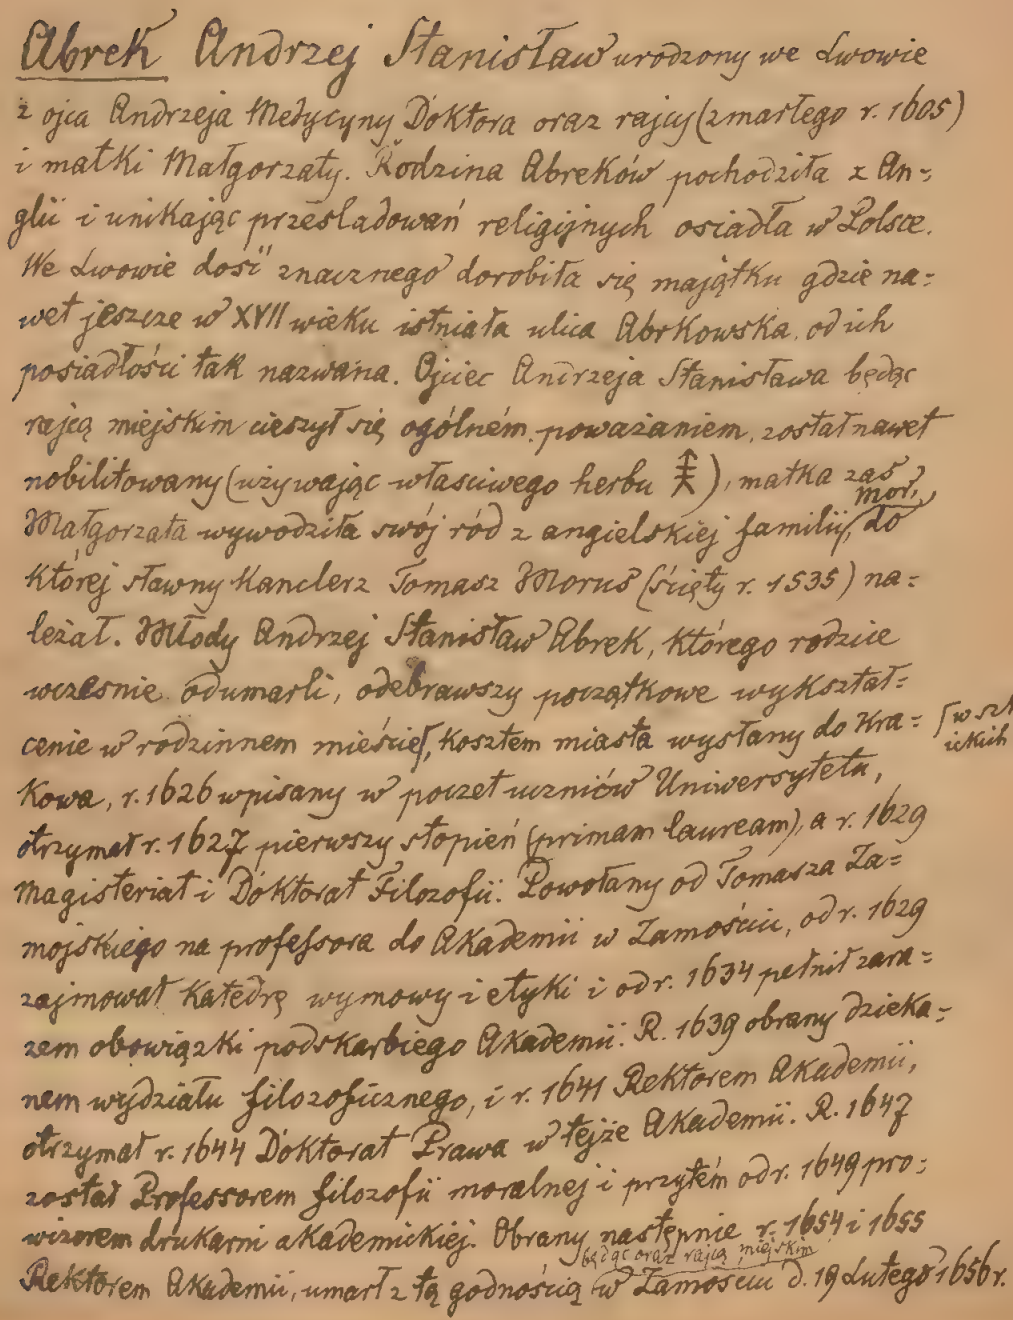 Abrek Andrzej Stanisław urodzony we Lwowie
z ojca Andrzeja Medycyny Doktora oraz rajcy (zmarłego r. 1605)
i matki Małgorzaty. Rodzina Abreków pochodziła z An=
glii i unikając prześladowań religijnych osiadła w Polsce.
We Lwowie dosić znacznego dorobiła się majątku gdzie na=
wet jeszcze w XVII wieku istniała ulica Abrkowska, od ich
posiadłości tak nazwana. Ojciec Andrzeja Stanisława będąc
rajcą miejskim cieszył się ogólném poważaniem, został nawet
nobilitowany (używając właściwego herbu ), matka zaś
Małgorzata wywodziła swój ród z angielskiej familii, do
której sławny Kanclerz Tomasz Morus (ścięty r. 1535) na=
leżał. Młody Andrzej Stanisław Abrek, którego rodzice
wczesnie odumarli, odebrawszy początkowe wykształ=
cenie w rodzinnem mieście, kosztem miasta wysłany do Kra=
kowa, r. 1626 wpisany w poczet uczniów Uniwersytetu,
otrzymał r. 1627 pierwszy stopień (primam lauream), a r. 1629
magisteriat i Doktorat Filozofii. Powołany od Tomasza Za=
mojskiego na professora do Akademii w Zamościu, od r. 1629
zajmował Katedrę wymowy i etyki i od r. 1634 pełnił zara=
zem obowiązki podskarbiego Akademii. R. 1639 obrany dzieka=
nem wydziału filozoficznego, i r. 1641 Rektorem Akademii,
otrzymał r. 1644 Doktorat Prawa w tejże Akademii. R. 1647
został Professorem filozofii moralnej i przytém od r. 1649 pro=
wizorem drukarni akademickiej. Obrany następnie r. 1654 i 1655
będąc oraz rajcą miejskim
Rektorem Akademii, umarł z tą godnością w Zamościu d. 19 Lutego 1656 r.